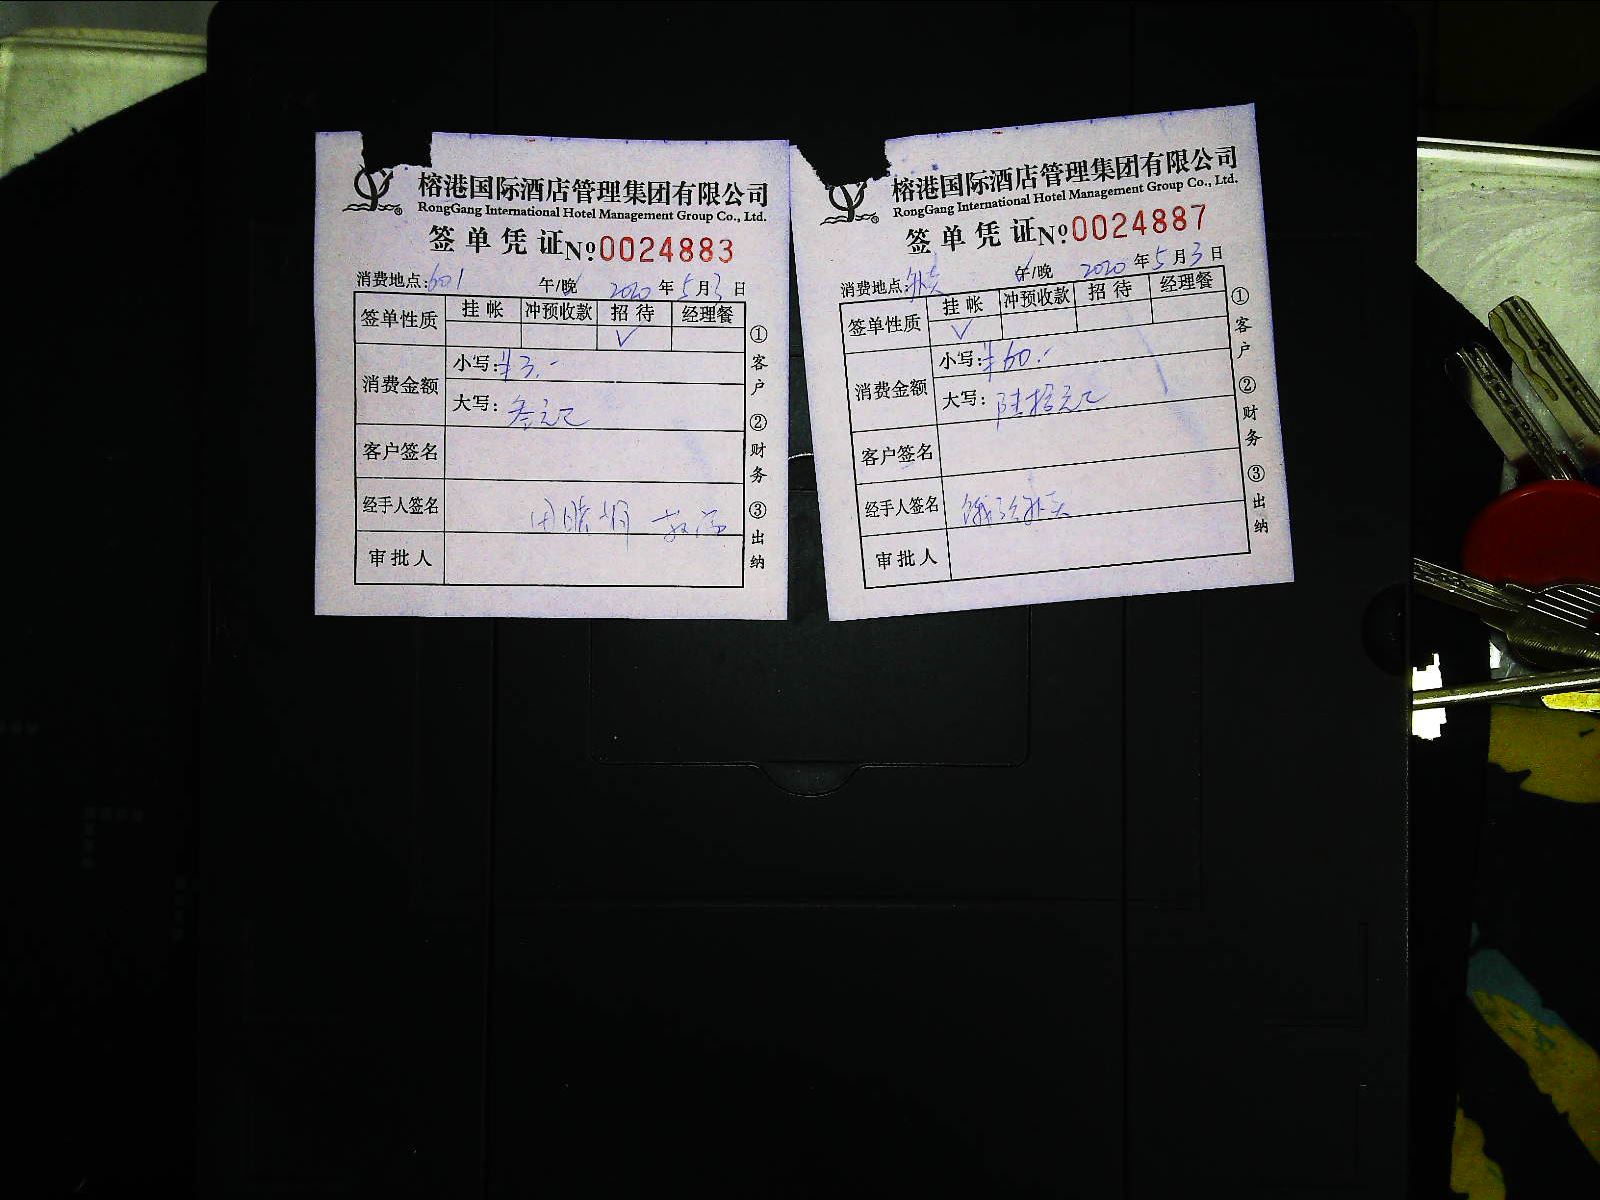 榕港国际酒店管理集团有限公司
RongGang International Hotel Management Group Co., Ltd.
签单凭证 №0024883
消费地点:601 午/晚 2020年5月3日
签单性质 挂帐 冲预收款 招待 经理餐
✓
消费金额 小写:¥3.-
大写:叁元
客户签名
经手人签名
审批人
①客户 ②财务 ③出纳
榕港国际酒店管理集团有限公司
RongGang International Hotel Management Group Co., Ltd.
签单凭证 №0024887
消费地点:外卖 午/晚 2020年5月3日
签单性质 挂帐 冲预收款 招待 经理餐
✓
消费金额 小写:¥60.-
大写:陆拾元
客户签名
经手人签名 外卖
审批人
①客户 ②财务 ③出纳